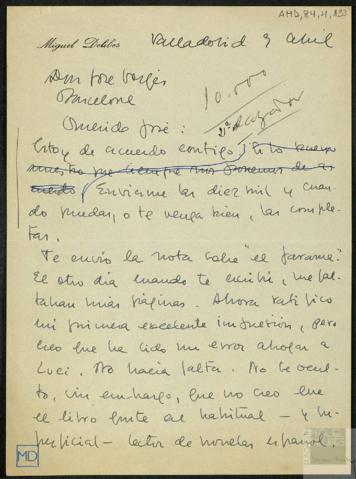 AMD,84,4,123
Miguel Delibes
Valladolid 9 abril
Don José Vergés
Barcelona
10.000
2º cazador
Querido José:
Estoy de acuerdo contigo. Es lo bueno
nuestro que siempre nos ponemos de a-
cuerdo. Envíame las diez mil y cuan-
do puedas, o te venga bien, las comple-
tas.
Te envío la nota sobre "el Jarama".
El otro día cuando te escribí, me fal-
taban unas páginas. Ahora ratifico
mi primera excelente impresión, pero
creo que ha sido un error ahogar a
Luci. No hacía falta. No te ocul-
to, sin embargo, que no creo que
el libro guste al habitual — y su-
perficial — lector de novelas español.
MD